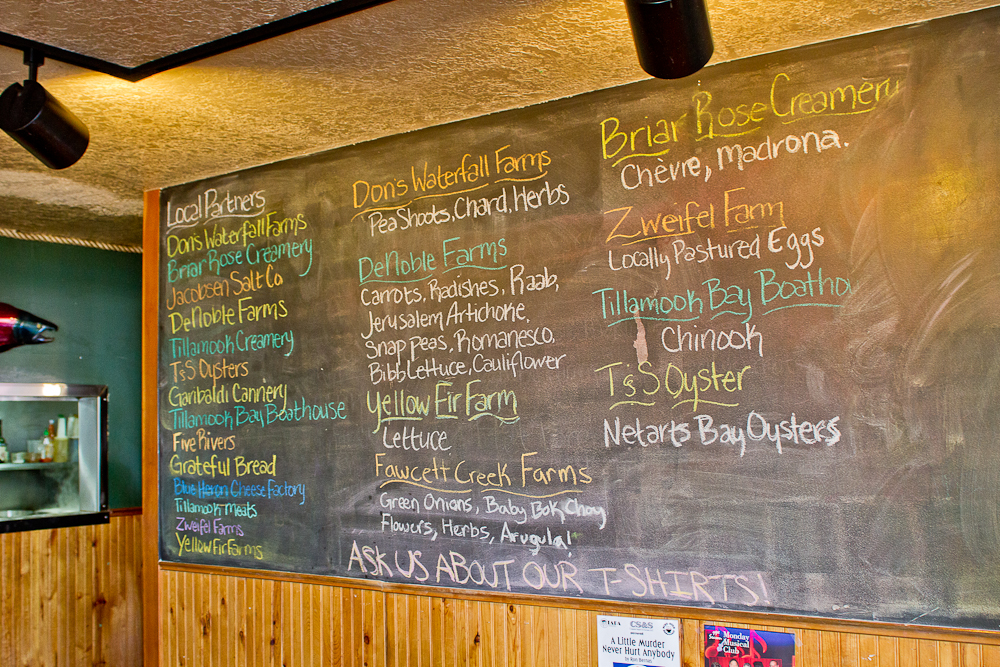 Local Partners
Don's Waterfall Farms
Briar Rose Creamery
Jacobsen Salt Co
DeNoble Farms
Tillamook Creamery
T&S Oysters
Garibaldi Cannery
Tillamook Bay Boathouse
Five Rivers
Grateful Bread
Blue Heron Cheese Factory
Tillamook Meats
Zweifel Farms
Yellow Fir Farms
Don's Waterfall Farms
Pea Shoots, Chard, Herbs
DeNoble Farms
Carrots, Radishes, Raab,
Jerusalem Artichoke,
Snap Peas, Romanesco,
Bibb Lettuce, Cauliflower
Yellow Fir Farm
Lettuce
Fawcett Creek Farms
Green Onions, Baby Bok Choy
Flowers, Herbs, Arugula!
ASK US ABOUT OUR T-SHIRTS!
Briar Rose Creamery
Chèvre, Madrona.
Zweifel Farm
Locally Pastured Eggs
Tillamook Bay Boathou
Chinook
T&S Oyster
Netarts Bay Oysters
A Little Murder
Never Hurt Anybody
Monday
Musical
Club